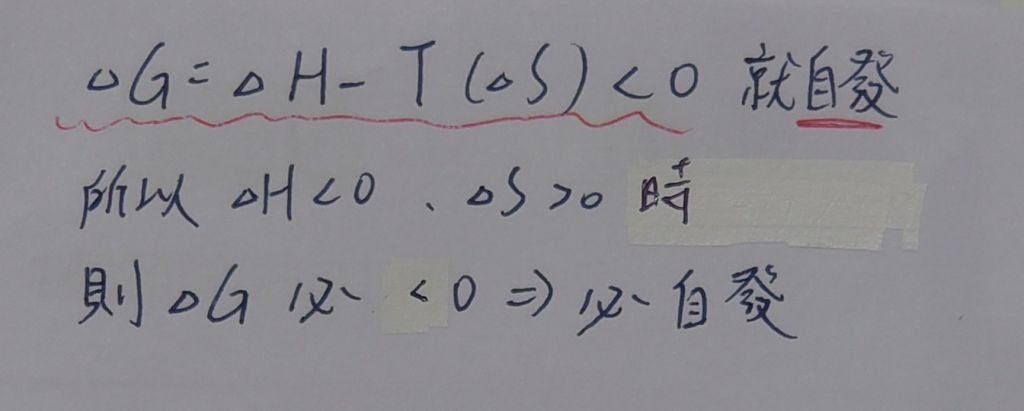 △G=△H-T(△S)<0 就自發
所以 △H<0、△S>0 時
則 △G 必 <0 ⇒ 必自發